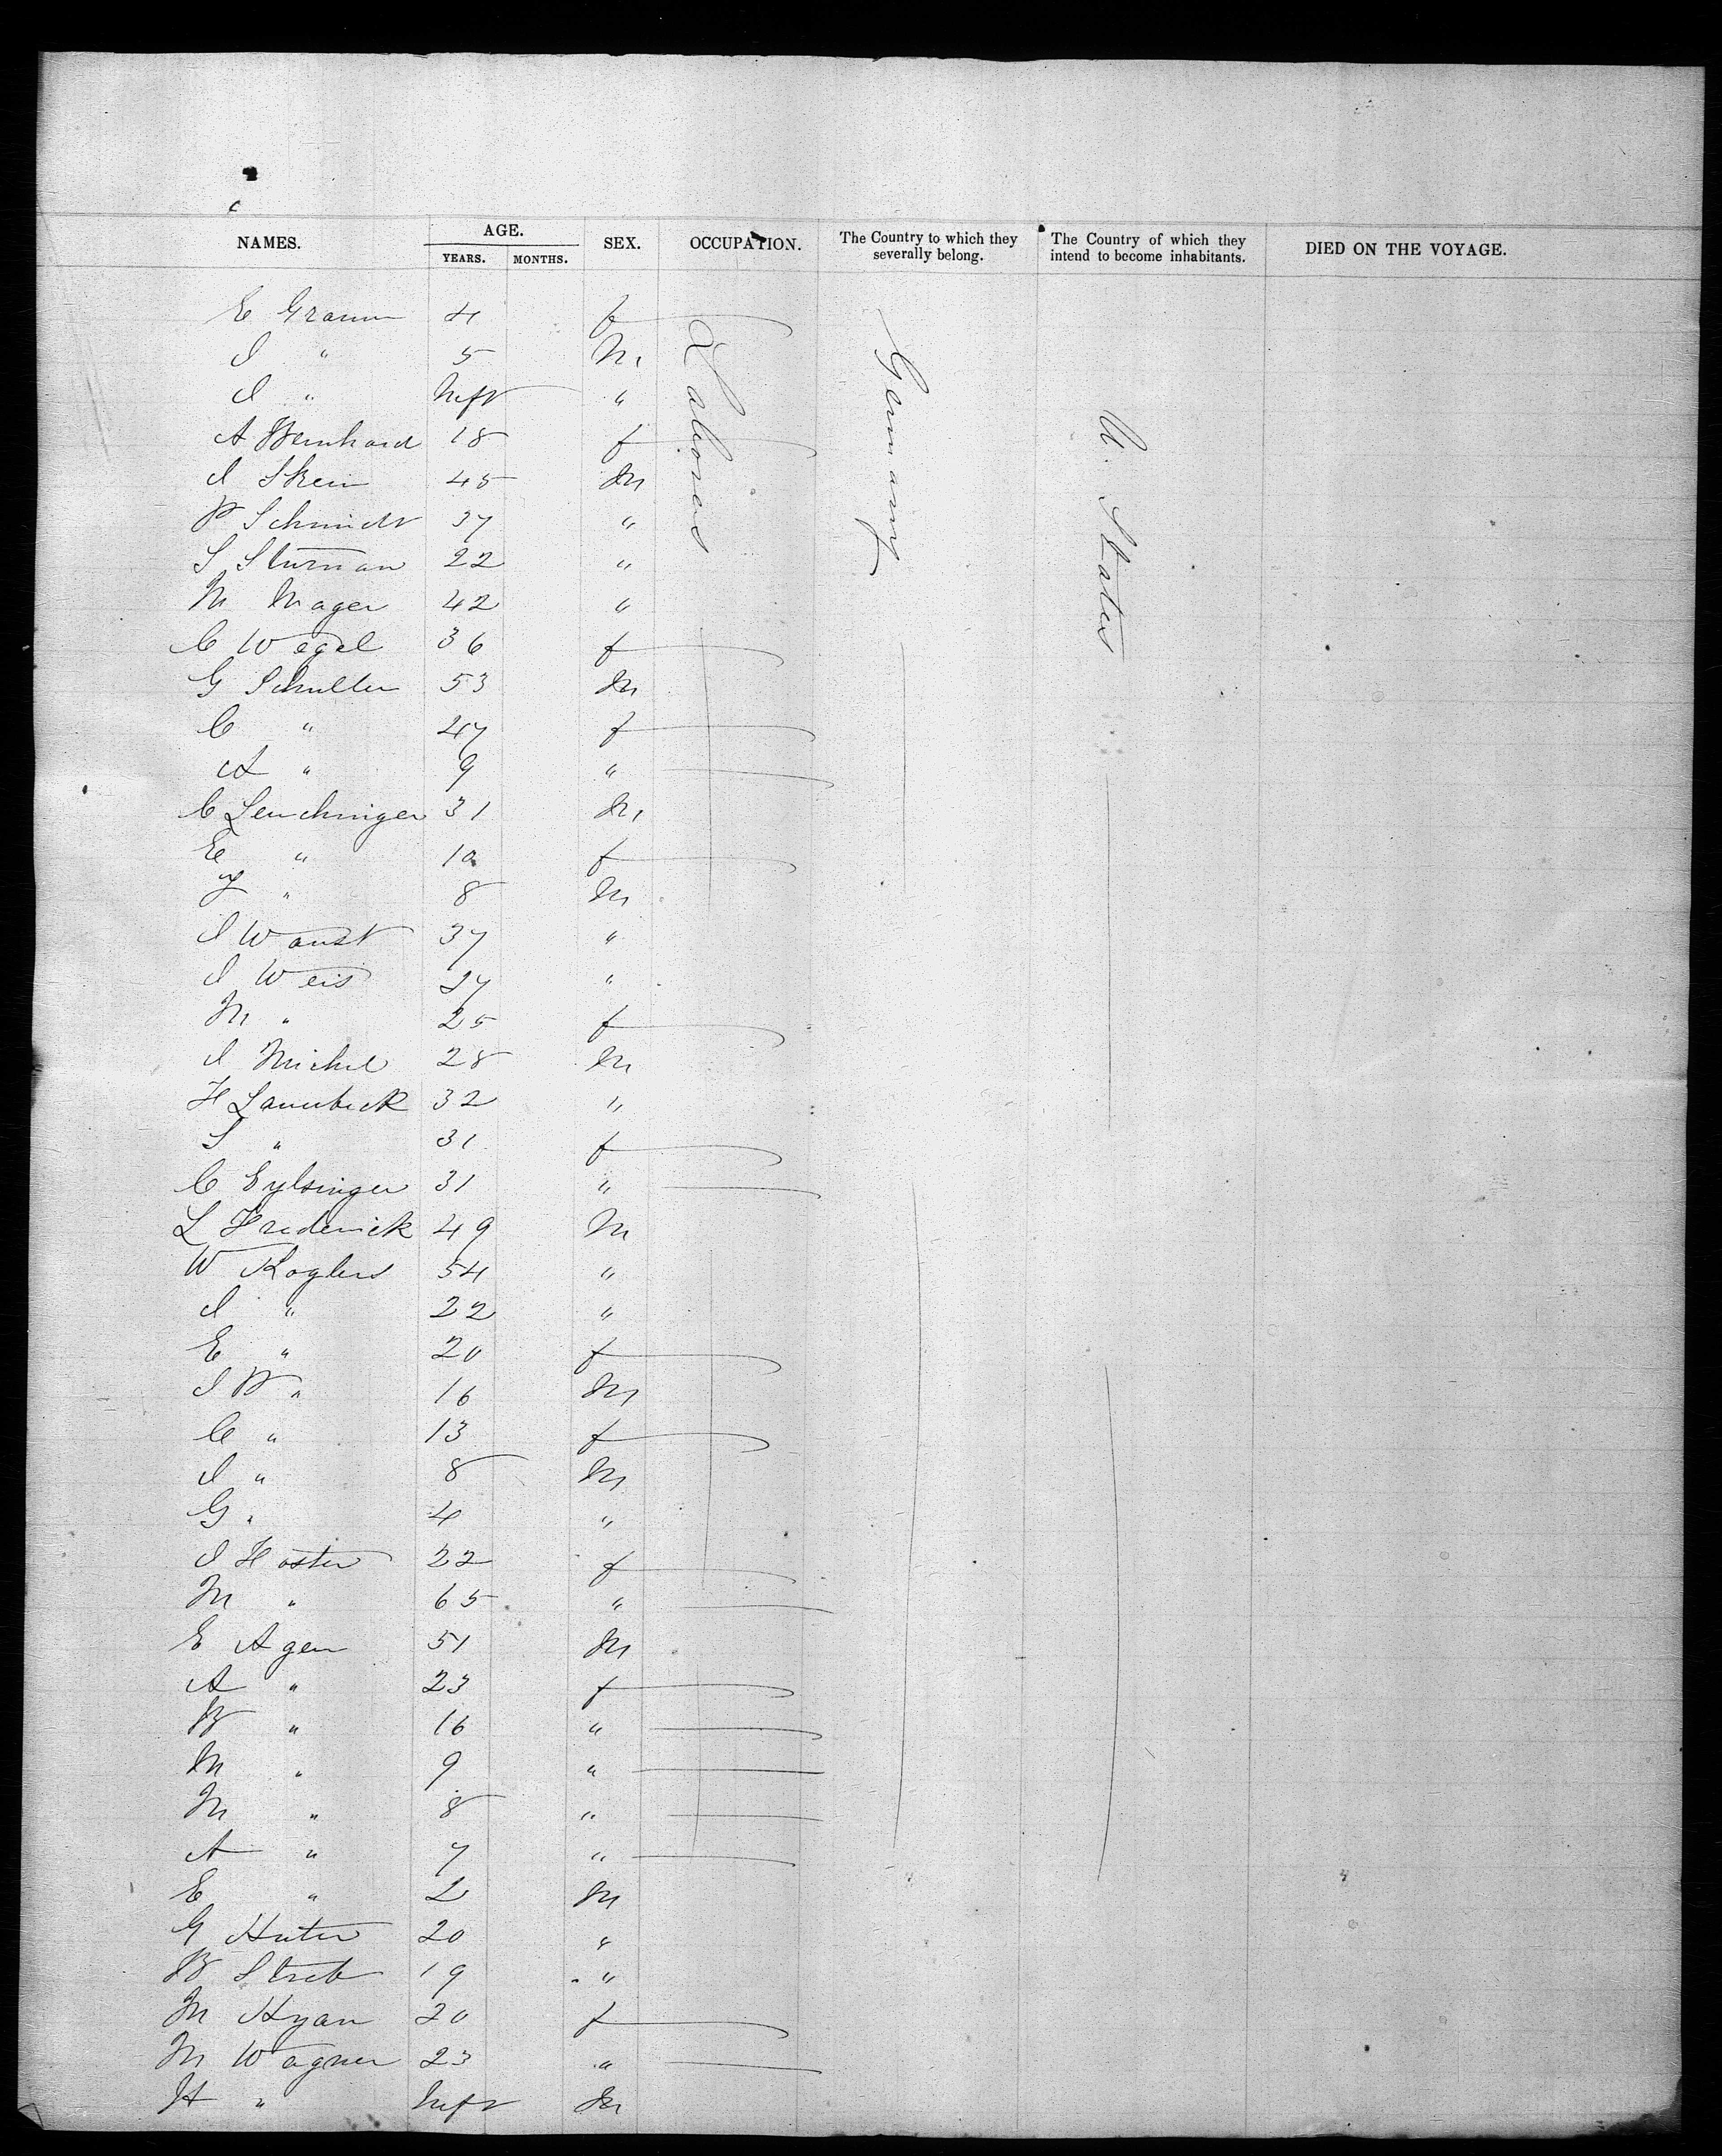 NAMES. AGE. SEX. OCCUPATION. The Country to which they severally belong. The Country of which they intend to become inhabitants. DIED ON THE VOYAGE.
YEARS. MONTHS.
E Gramm 4 f Laborers Germany U. States
J " 5 M
J " Inft "
A Bernhard 18 f
J Skein 45 M
P Schmidt 37 "
S Sturman 22 "
M Mager 42 "
C Wagel 36 f
G Schuller 53 M
C " 47 f
A " 9 "
C Leuchinger 31 M
E " 10 f
F " 8 M
J Wanst 37 "
J Weis 27 "
M " 25 f
J Michel 28 M
H Lauerback 32 "
S " 31 f
C Eylsinger 31 "
L Frederick 49 M
W Koglers 54 "
J " 22 "
E " 20 f
J P " 16 M
C " 13 f
J " 8 M
G " 4 "
J Hoster 22 f
M " 65 "
E Agen 51 M
A " 23 f
B " 16 "
M " 9 "
M " 8 "
A " 7 "
E " 2 M
G Huter 20 "
B Streb 19 "
M Hyan 20 f
M Wagner 23 "
H " Inft M